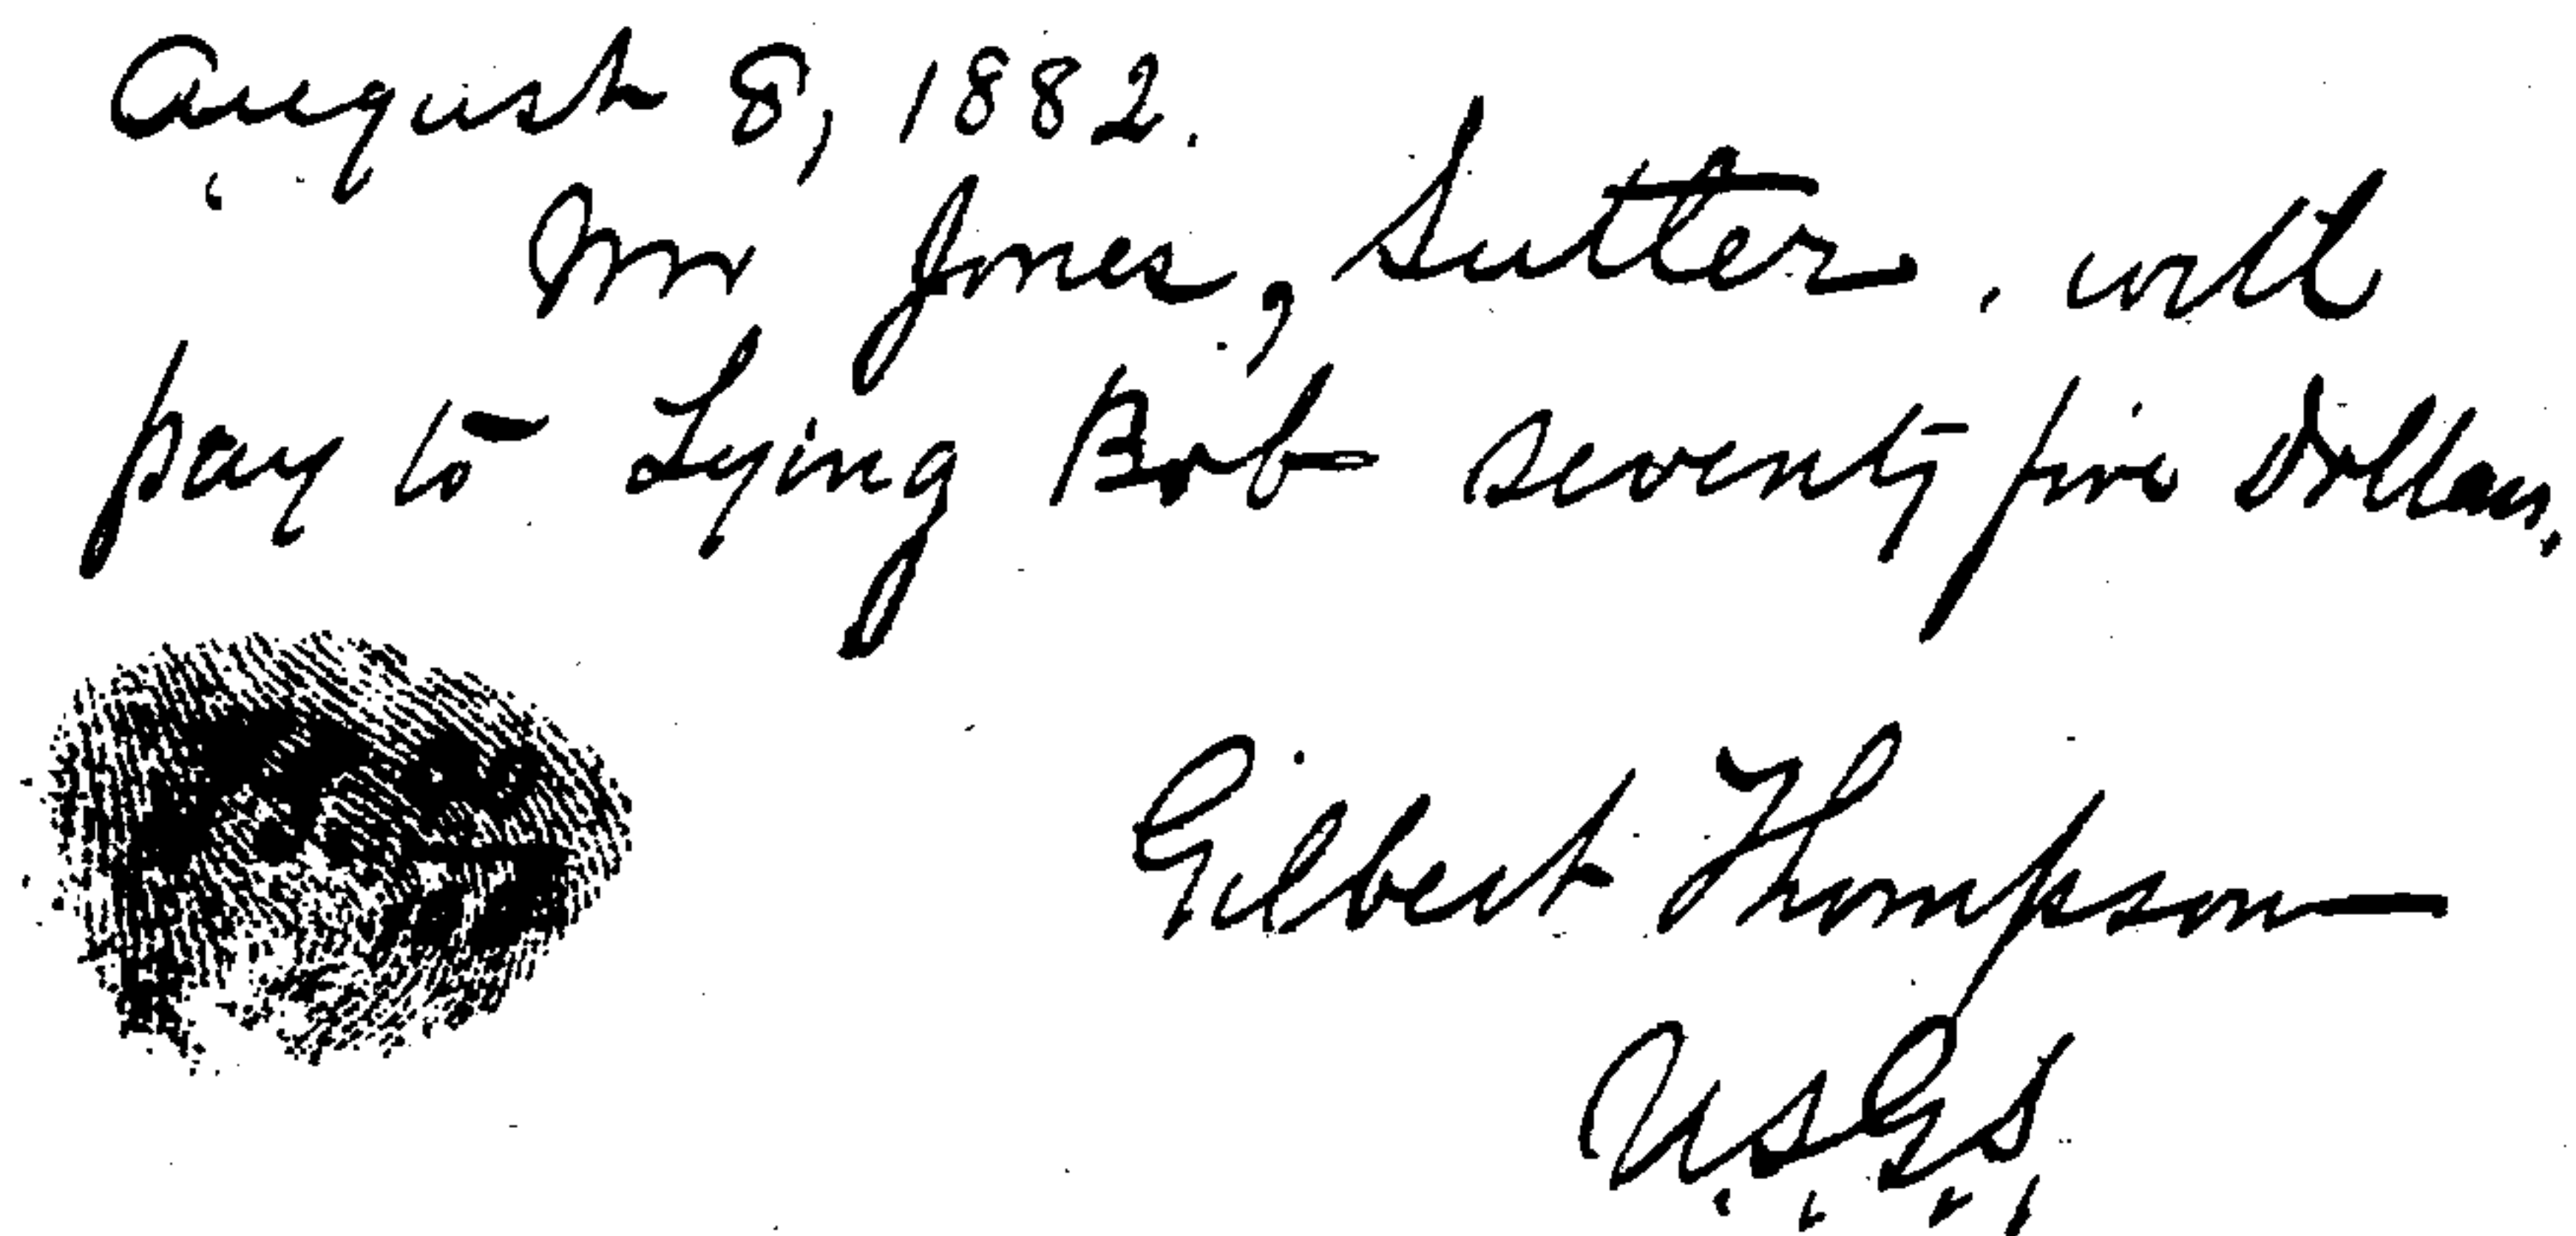 August 8, 1882.
Mr Jones, Sutter, will
pay to Lying Bob seventy five Dollars.
Gilbert Thompson
U.S.G.S.